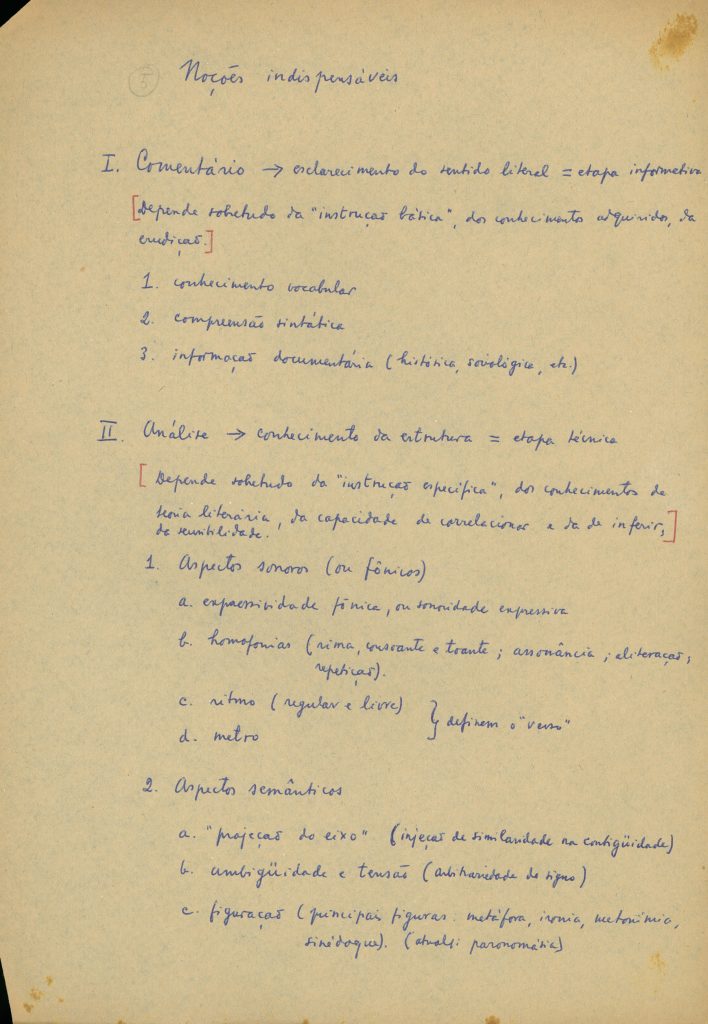 5 Noções indispensáveis
I. Comentário → esclarecimento do sentido literal = etapa informativa
[Depende sobretudo da "instrução básica", dos conhecimentos adquiridos, da
erudição.]
1. conhecimento vocabular
2. compreensão sintática
3. informação documentária (histórica, sociológica, etc.)
II. Análise → conhecimento da estrutura = etapa técnica
[Depende sobretudo da "instrução específica", dos conhecimentos de
teoria literária, da capacidade de correlacionar e da de inferir,]
da sensibilidade.
1. Aspectos sonoros (ou fônicos)
a. expressividade fônica, ou sonoridade expressiva
b. homofonias (rima, consoante e toante; assonância; aliteração;
repetição).
c. ritmo (regular e livre)
d. metro } definem o "verso"
2. Aspectos semânticos
a. "projeção do eixo" (injeção de similaridade na contigüidade)
b. ambigüidade e tensão (arbitrariedade do signo)
c. figuração (principais figuras: metáfora, ironia, metonímia,
sinédoque). (atualte: paronomásia)